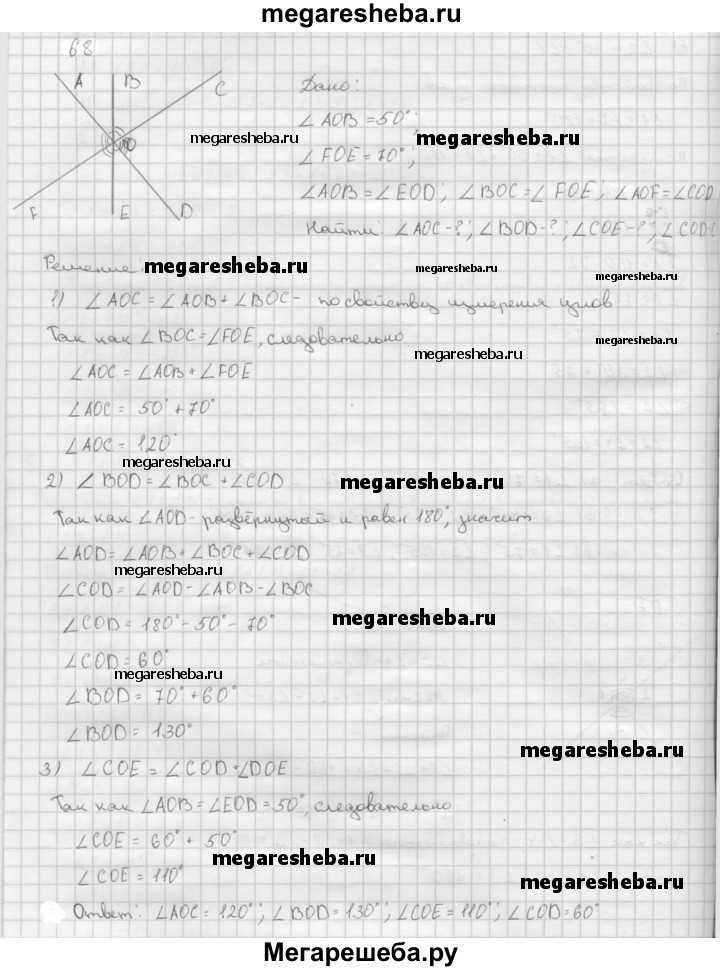 megaresheba.ru
68
A B C
Дано:
∠AOB = 50°;
megaresheba.ru
megaresheba.ru
O
∠FOE = 70°;
megaresheba.ru
∠AOB = ∠EOD; ∠BOC = ∠FOE; ∠AOF = ∠COD
F E D
Найти: ∠AOC-?; ∠BOD-?; ∠COE-?; ∠COD-?
Решение:
megaresheba.ru
megaresheba.ru
megaresheba.ru
1) ∠AOC = ∠AOB + ∠BOC - по свойству измерения углов
Так как ∠BOC = ∠FOE, следовательно
megaresheba.ru
megaresheba.ru
∠AOC = ∠AOB + ∠FOE
∠AOC = 50° + 70°
∠AOC = 120°
megaresheba.ru
2) ∠BOD = ∠BOC + ∠COD
megaresheba.ru
Так как ∠AOD - развёрнутый и равен 180°, значит
∠AOD = ∠AOB + ∠BOC + ∠COD
megaresheba.ru
∠COD = ∠AOD - ∠AOB - ∠BOC
∠COD = 180° - 50° - 70°
megaresheba.ru
∠COD = 60°
megaresheba.ru
∠BOD = 70° + 60°
∠BOD = 130°
megaresheba.ru
3) ∠COE = ∠COD + ∠DOE
Так как ∠AOB = ∠EOD = 50°, следовательно
∠COE = 60° + 50°
megaresheba.ru
∠COE = 110°
megaresheba.ru
Ответ: ∠AOC = 120°; ∠BOD = 130°; ∠COE = 110°; ∠COD = 60°
Мегарешеба.ру